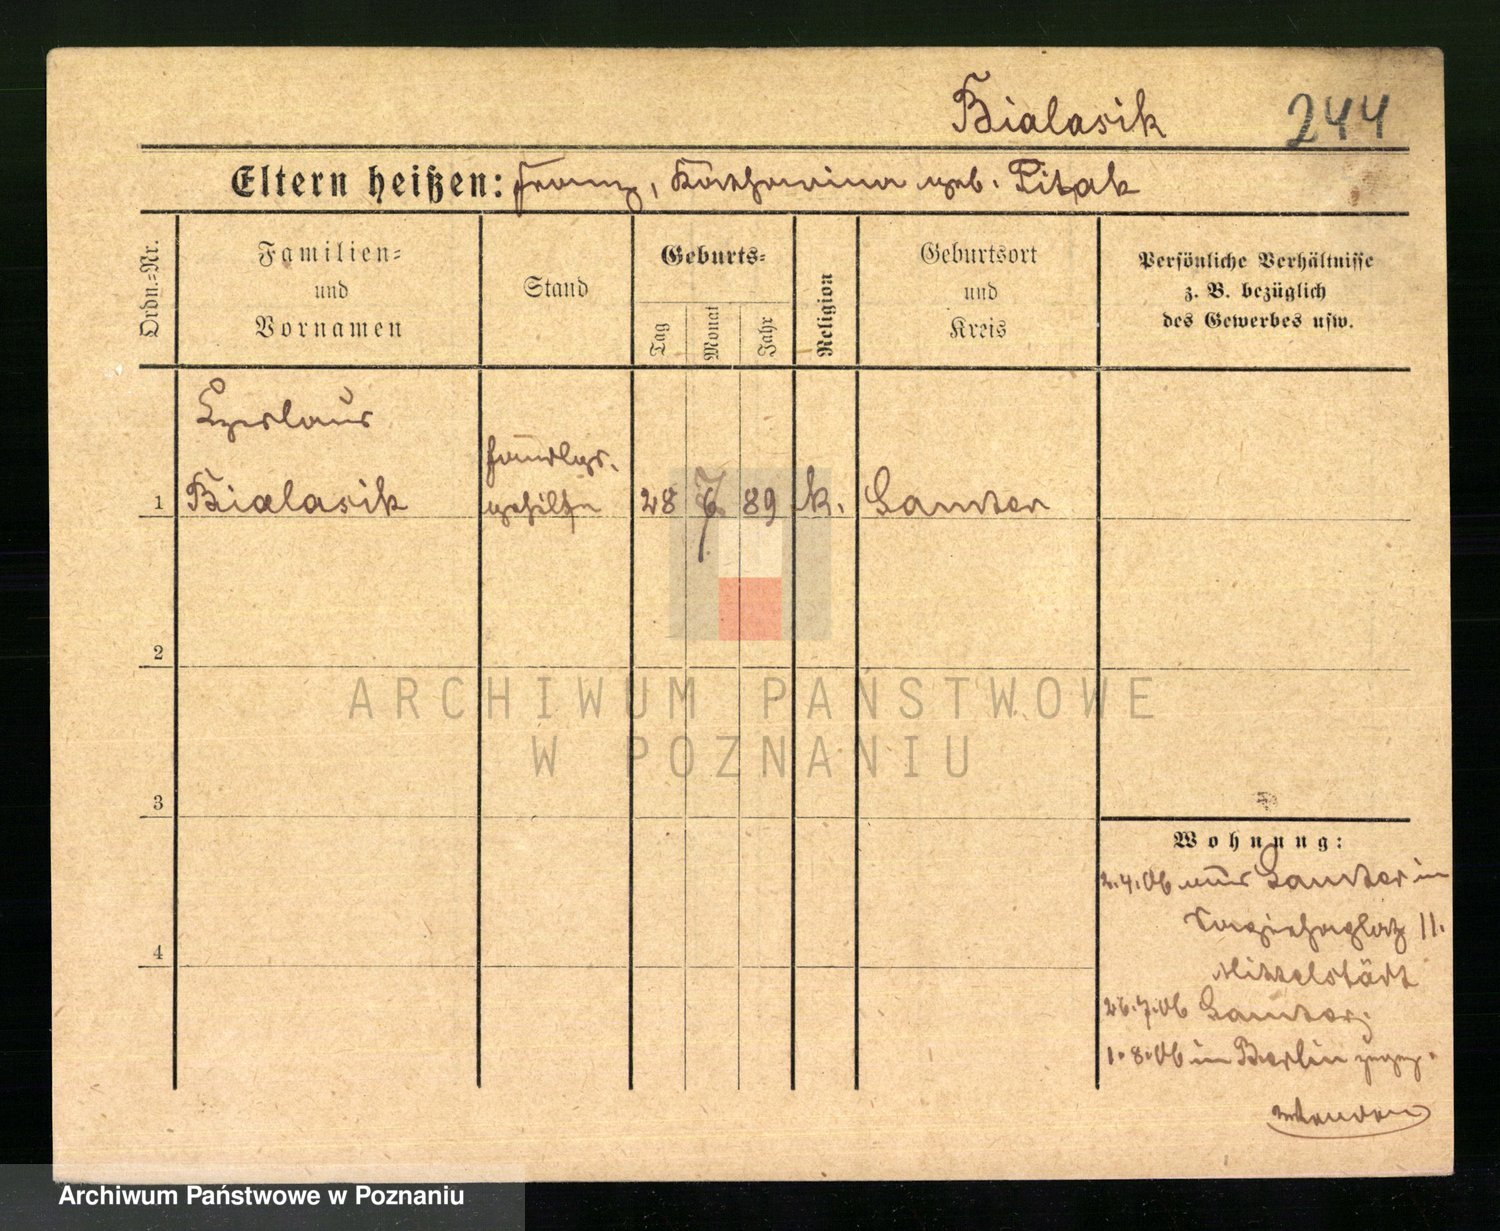 Bialasik 244
Eltern heißen: Franz, Katharina geb. Pitak
Ordn.-Nr.
Familien-
und
Vornamen
Stand
Geburts-
Tag
Monat
Jahr
Religion
Geburtsort
und
Kreis
Persönliche Verhältnisse
z. B. bezüglich
des Gewerbes usw.
Czeslaus
Handlgs.
1 Bialasik gehilfe 28 7 89 k. Samter
2
3
4
Wohnung:
2.4.06 aus Samter in
11.
Mittelstädt
26.7.06 Samter
1.8.06 in Berlin zugez.
ARCHIWUM PAŃSTWOWE
W POZNANIU
Archiwum Państwowe w Poznaniu